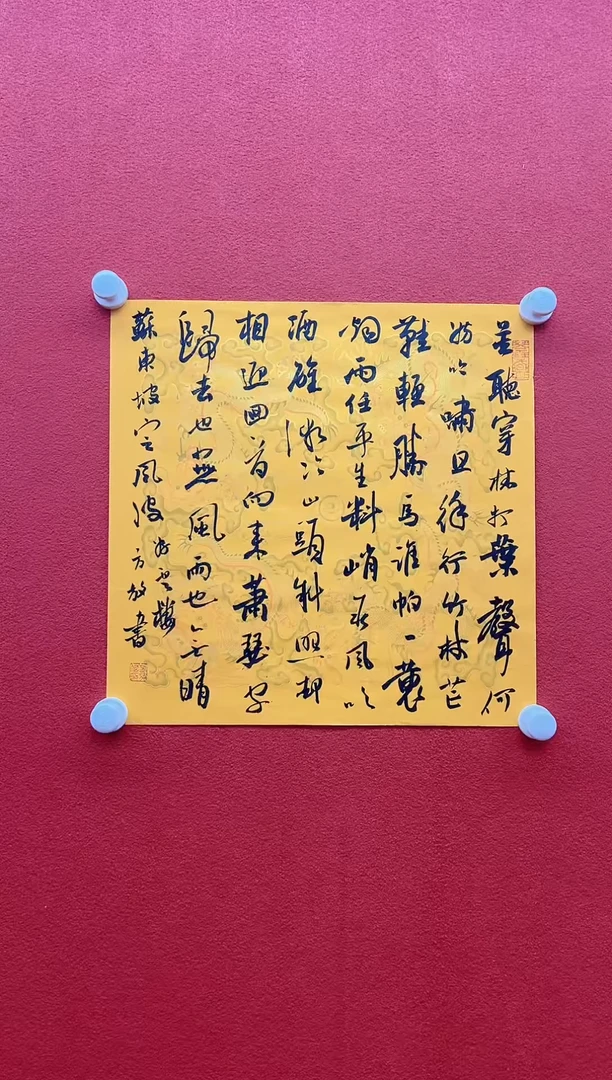 莫聽穿林打葉聲何
妨吟嘯且徐行竹杖芒
鞋輕勝馬誰怕一蓑
烟雨任平生料峭春風吹
酒醒微冷山頭斜照却
相迎回首向來蕭瑟處
歸去也無風雨也無晴
蘇東坡定風波
雲樓
方放書